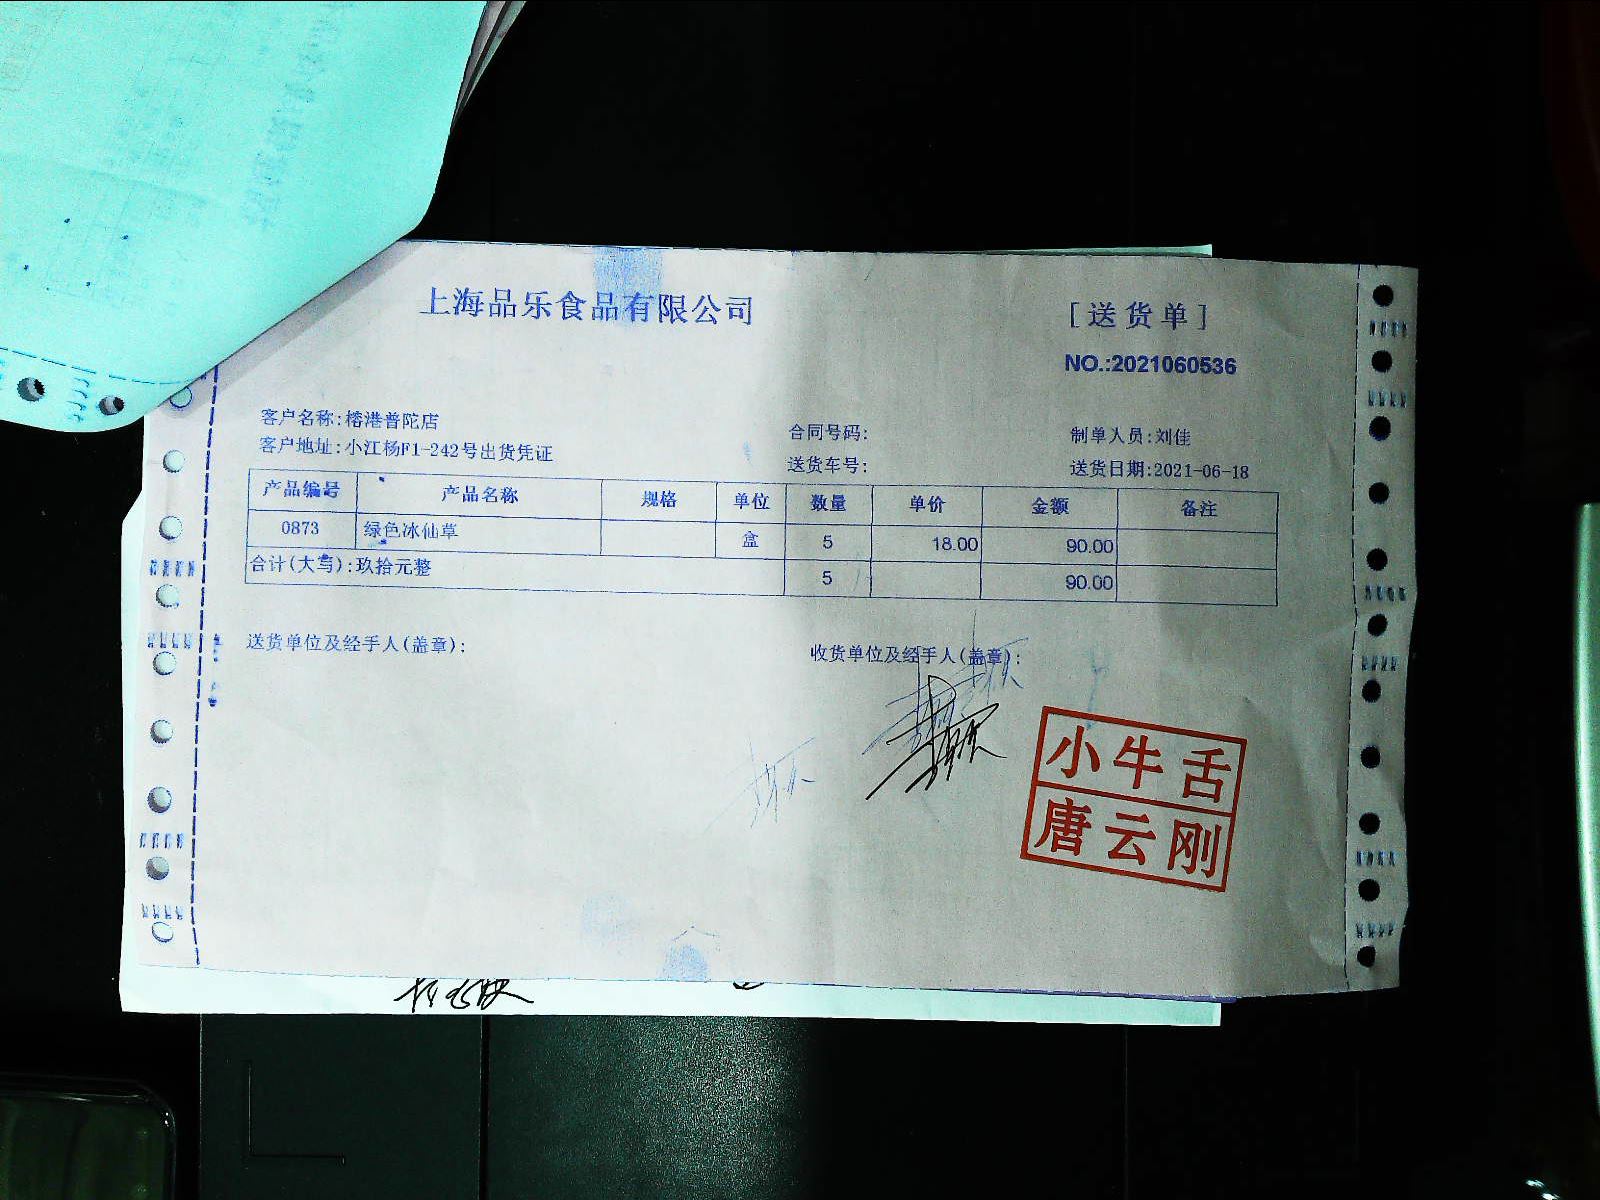 上海品乐食品有限公司
[送货单]
NO.:2021060536
客户名称:榕港普陀店
合同号码:
制单人员:刘佳
客户地址:小江杨F1-242号出货凭证
送货车号:
送货日期:2021-06-18
产品编号 产品名称 规格 单位 数量 单价 金额 备注
0873 绿色冰仙草 盒 5 18.00 90.00
合计(大写):玖拾元整 5 90.00
送货单位及经手人(盖章):
收货单位及经手人(盖章):
小牛舌
唐云刚